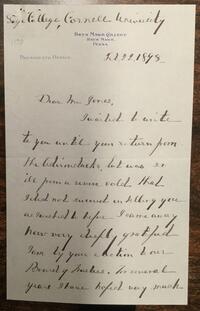 College, Cornell University
Bryn Mawr College
Bryn Mawr,
Penna.
President's Office.
22. 1898
Dear Mr Jones,
I waited to write
to you until your return from
the Adirondacks, but was so
ill from a severe cold that
I did not succeed in telling you
as I wanted to before I came away
how very deeply gratified
I am by your election to our
Board of Trustees. For several
years I have hoped very much